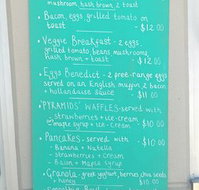 mushroom, hash brown, 2 toast
Bacon, eggs grilled tomato on
toast - $12.00
Veggie Breakfast - 2 eggs
grilled tomato, beans mushrooms
hash brown + toast - $12.00
Eggs Benedict - 2 free-range eggs
served on an English muffin 2 bacon
+ hollandaise sauce $11.00
PYRAMIDS' WAFFLES - served with
- strawberries + ice-cream
- maple syrup + ice-cream - $10.00
Pancakes - served with
- Banana + Nutella
- Strawberries + cream $10.00
- Bacon + Maple Syrup
Granola - greek yoghurt, berries chia seeds
$10.00